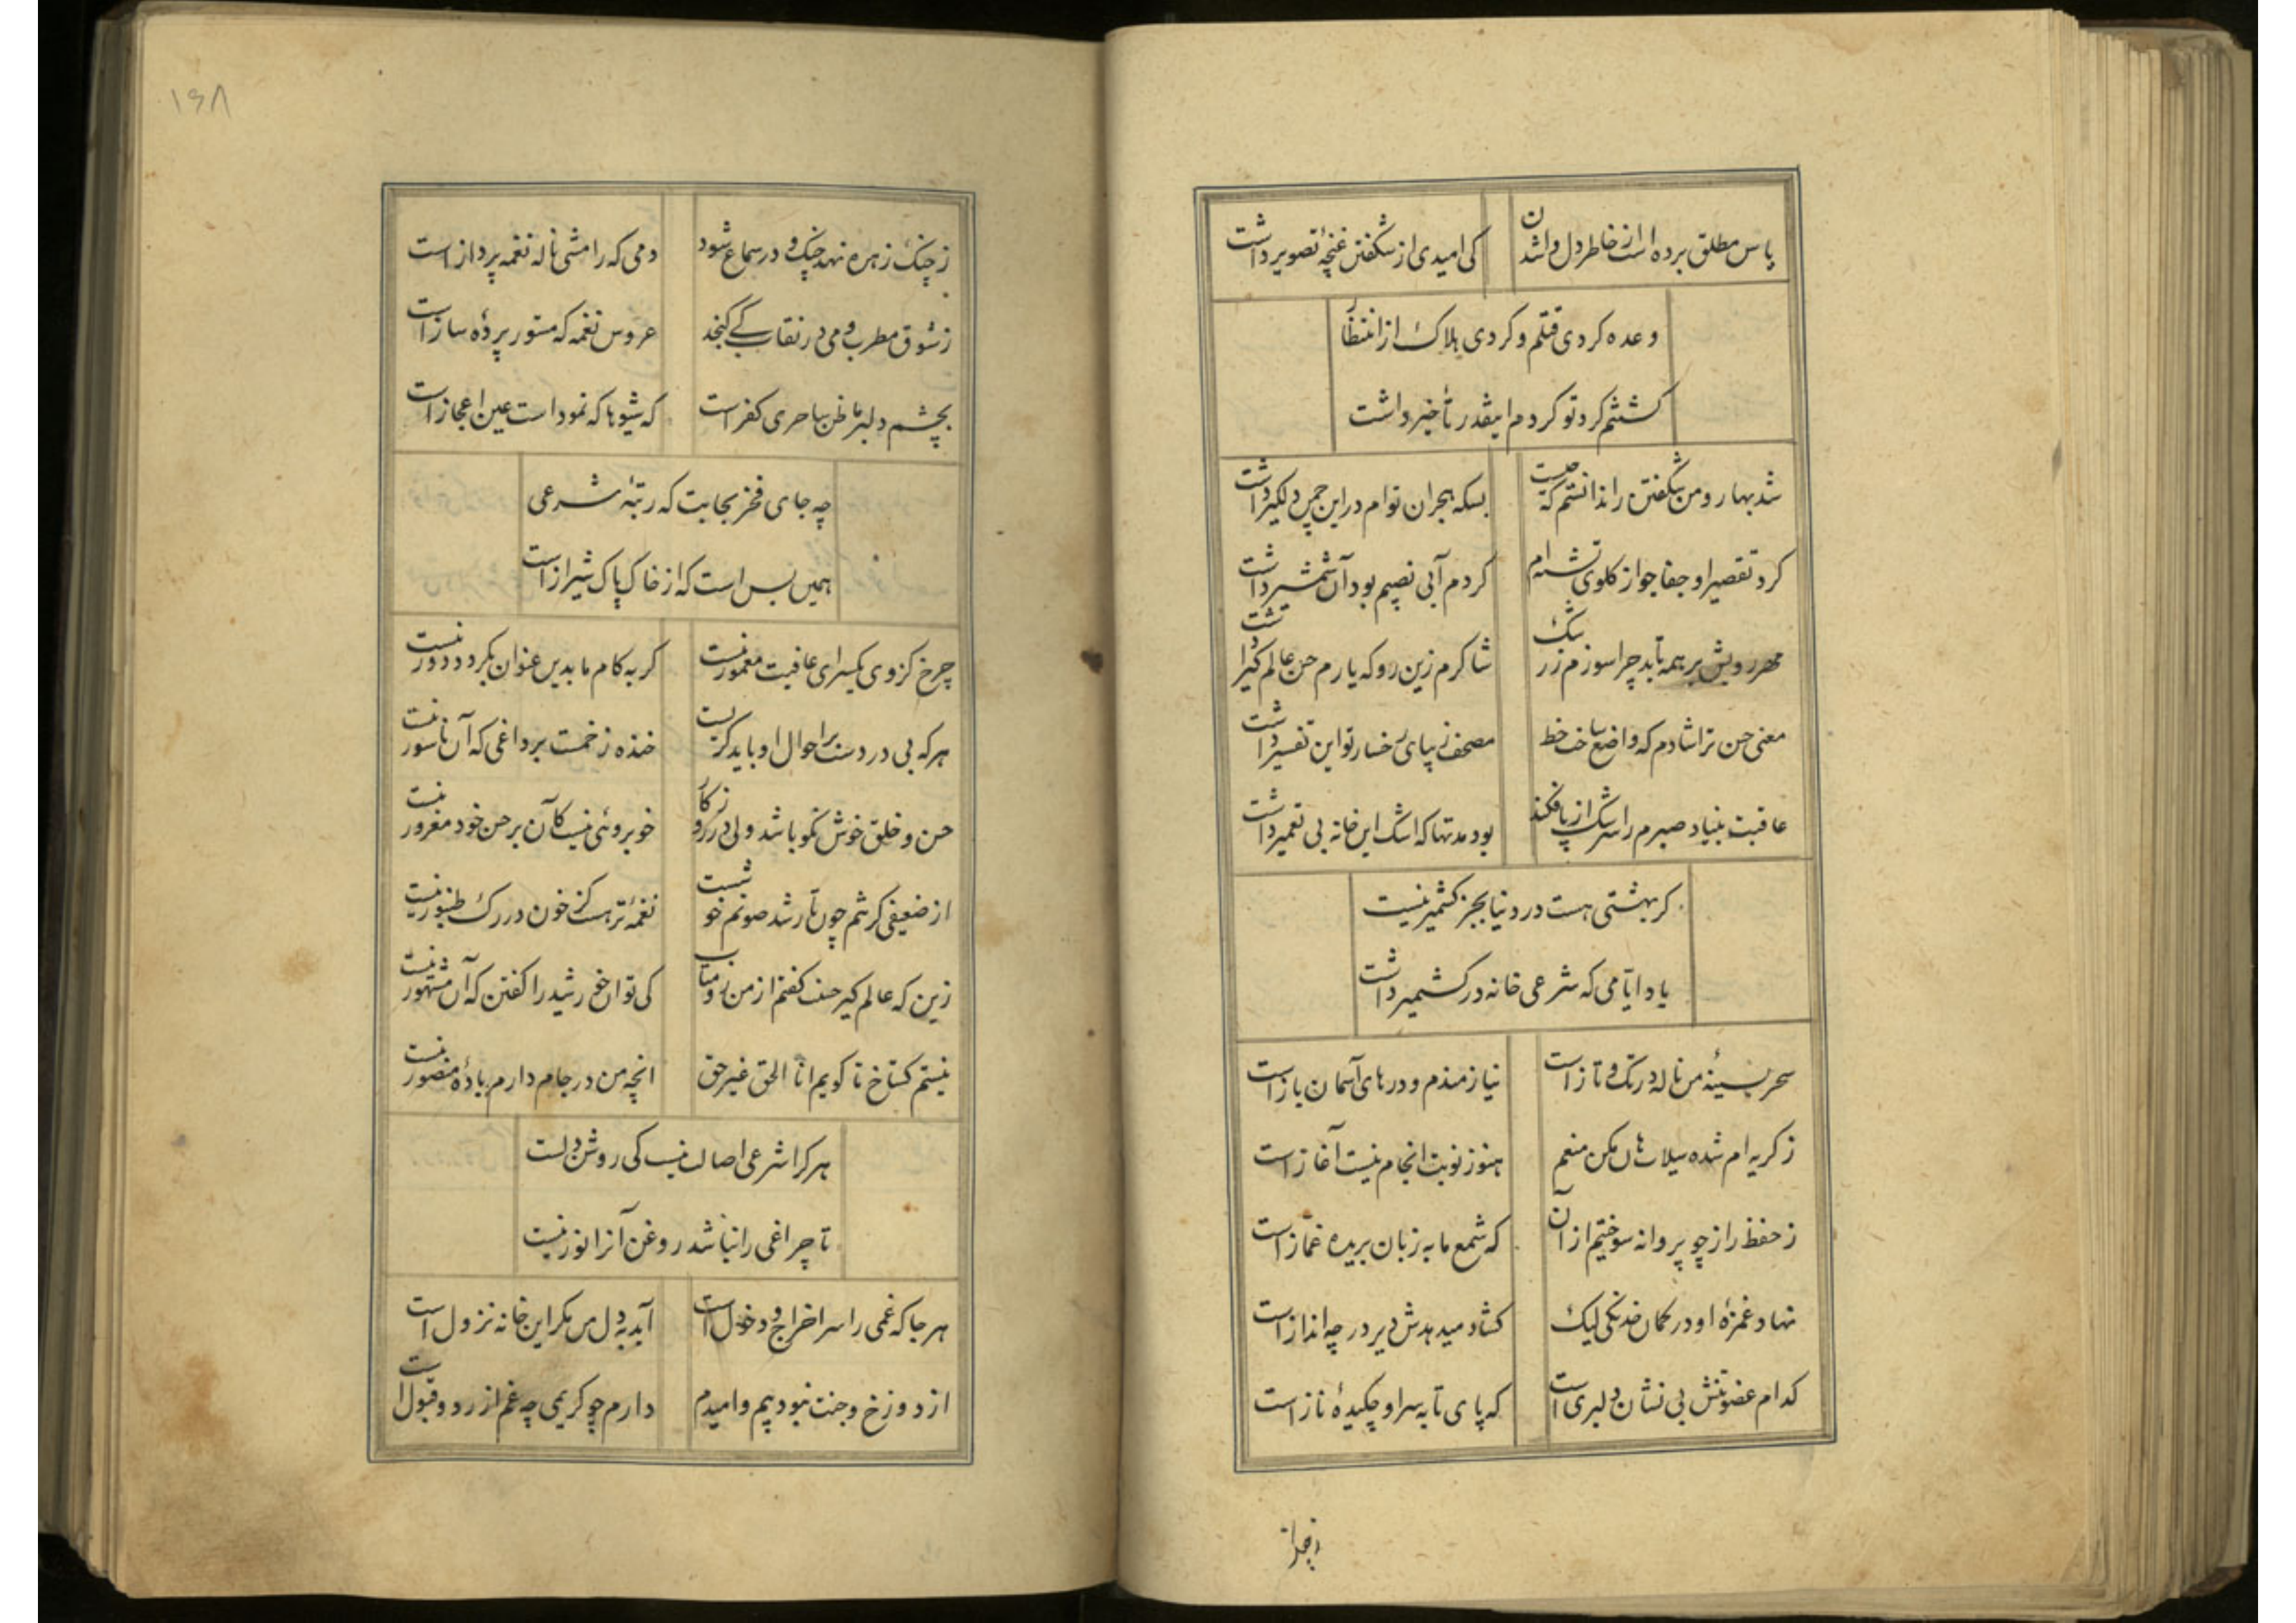 یاس مطلق برده است از خاطر دل واشدن
کی امیدی از شگفتن غنچهٔ تصویر داشت
وعده کردی قتلم و کردی هلاک از انتظار
کشتنم کرد تو کردم اینقدر تأخیر داشت
شد بهار و من شگفتن را ندانستم که چیست
بسکه هجران توام در این چمن دلگیر داشت
کرد تقصیر او جفا جو از کلوی تشنه‌ام
کردم آبی نصیبم بود آن شمشیر داشت
مهر رویش بر همه تابد چرا سوزم ز رشک
شاکرم زین رو که یارم حسن عالم گیر داشت
معنی حسن ترا شادم که واضع ساخت خط
مصحف زیبای رخسار تو این تفسیر داشت
عاقبت بنیاد صبرم را سرشک از پا فکند
بود مدتها که اشک این خانه بی تعمیر داشت
کر بهشتی هست در دنیا بجز کشمیر نیست
یاد ایامی که شرعی خانه در کشمیر داشت
سحر بسینهٔ من ناله در تک و تاز است
نیازمندم و درهای آسمان باز است
ز کریه ام شده سیلاب هان مکن منعم
هنوز نوبت انجام نیست آغاز است
ز حفظ راز چو پروانه سوختیم از آن
که شمع ما به زبان بریده غماز است
نهاد غمزهٔ او در کمان خدنگی لیک
کشاد میدهدش دیر در چه انداز است
کدام عضو تنش بی نشان دلبری است
که پای تا به سر او چکیدهٔ ناز است
ز چنک زهره نهد چنک و در سماع شود
دمی که رامشی ناله نغمه پرداز است
ز شوق مطرب و می در نقاب کے کنجد
عروس نغمه که مستور پردهٔ ساز است
بچشم دلبر ما ظن ساحری کفر است
که شیوها که نموداست عین اعجاز است
چه جای فخر نجابت که رتبهٔ شرعی
همین بس است که از خاک پاک شیراز است
چرخ کز وی یکسرای عافیت معمور نیست
کر به کام ما بدین عنوان بکردد دور نیست
هرکه بی درد است بر احوال او باید کریست
خنده زخمست بر داغی که آن ناسور نیست
حسن و خلق خوش نکو باشد ولی در روزکار
خوبروئی نیست کآن بر حسن خود مغرور نیست
از ضعیفی کر تنم چون تار شد صوتم خوشست
نغمهٔ تر هست کز خون در رک طنبور نیست
زین که عالم کیر حسنت کفتم از من رو متاب
کی توان خورشید را کفتن که آن مشهور نیست
نیستم کستاخ تا کویم انا الحق غیر حق
انچه من در جام دارم بادهٔ منصور نیست
هرکرا شرعی اصالت نیست کی روشن دلست
تا چراغی را نباشد روغن آنرا نور نیست
هرجا که غمی را سر اخراج و دخول است
آید به دل من مکر این خانه نزول است
از دوزخ و جنت نبود بیم و امیدم
دارم چو کریمی چه غم از رد و قبول است
۱۶۸